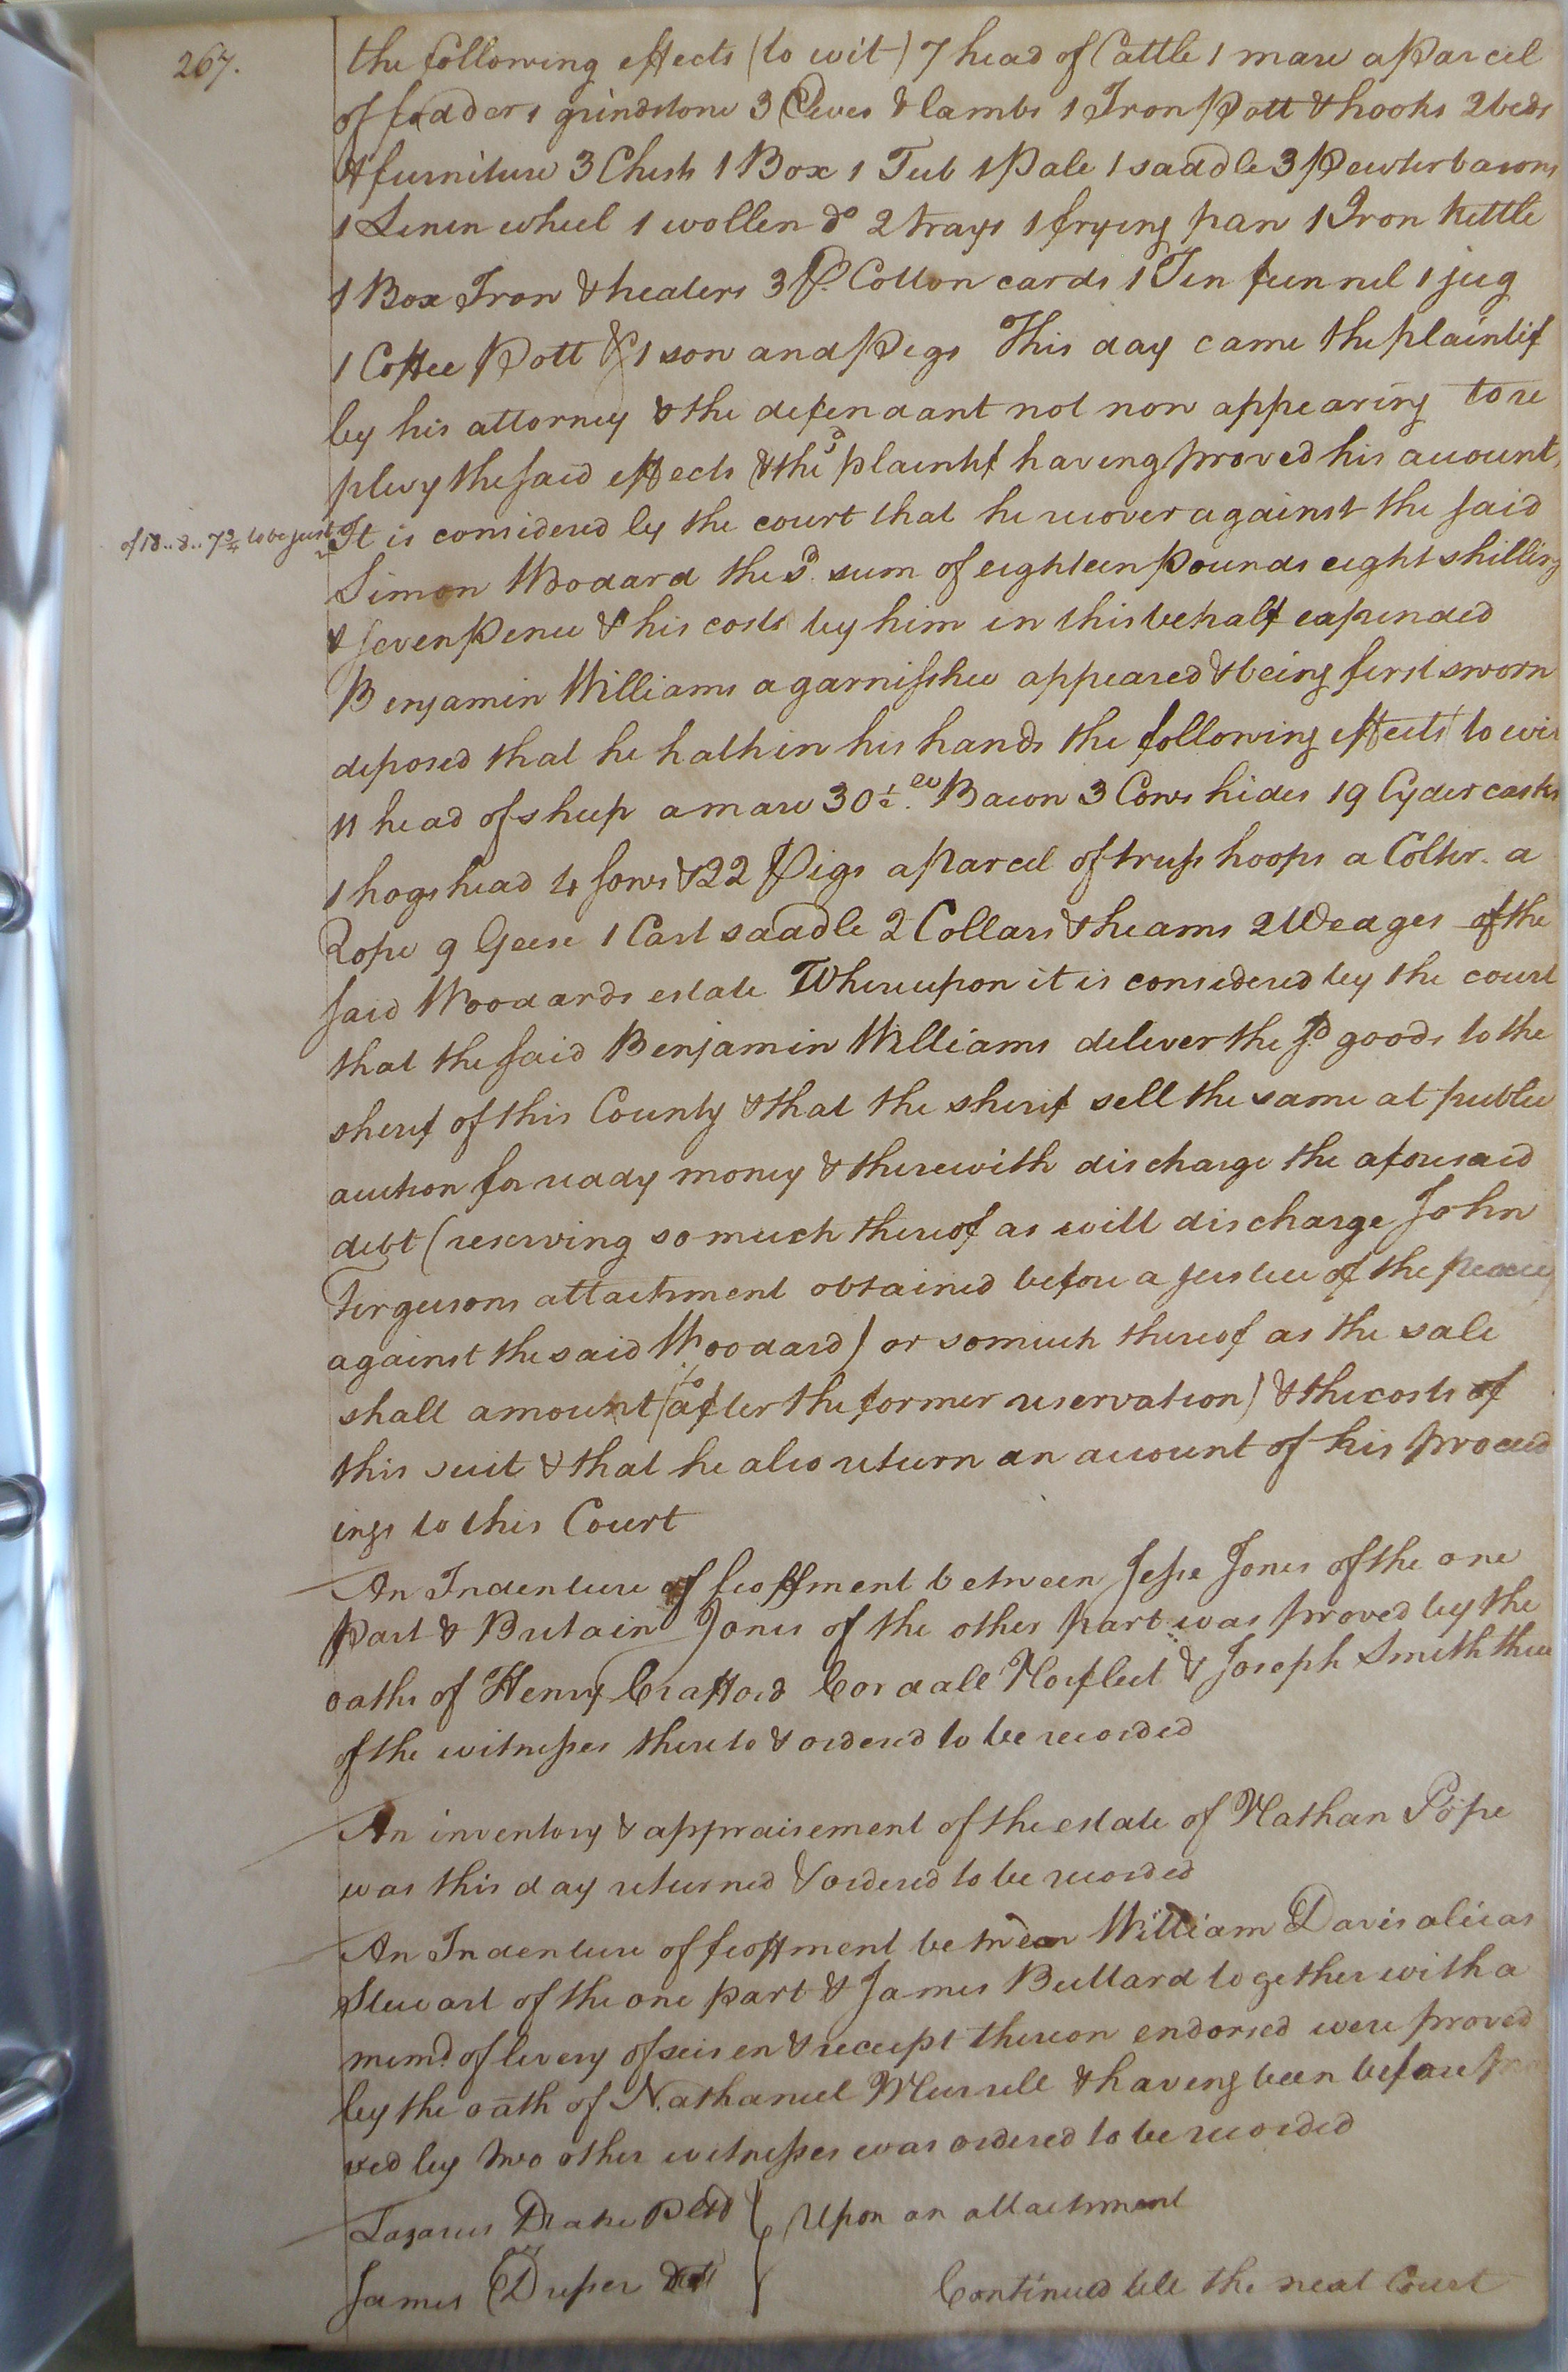 267.
the following effects (to wit) 7 head of Cattle 1 mare a Parcel
of fodder 1 grindstone 3 Ewes & lambs 1 Iron Pott & hooks 2 beds
& furniture 3 Chests 1 Box 1 Tub 1 Pale 1 saddle 3 Pewter basons
1 Linin wheel 1 wollen do 2 trays 1 frying pan 1 Iron kettle
1 Box Iron & heaters 3 Pr. Cotton cards 1 Tin funnel 1 jug
1 Coffee Pott & 1 sow and Pigs This day came the plaintif
by his attorney & the defendant not non appearing to re
plevy the said effects & the sd plaintif having proved his account
of 18..8..7 3/4 to be just
It is considered by the court that he recover against the said
Simon Woodard the sd. sum of eighteen Pounds eight shilling
& seven Pence & his costs by him in this behalf expended
Benjamin Williams a garnisshee appeared & being first sworn
deposed that he hath in his hands the following effects to wit
11 head of sheep a mare 30 1/2. lb Bacon 3 Cows hides 19 Cyder casks
1 hogshead 4 sows & 22 Pigs a Parcel of truss hoops a Colter. a
Rope 9 Geese 1 Cart saddle 2 Collars & heams 2 Wedges of the
said Woodards estate Whereupon it is considered by the court
that the said Benjamin Williams deliver the sd goods to the
sherif of this County & that the sherif sell the same at public
auction for ready money & therewith discharge the aforesaid
debt (reserving so much thereof as will discharge John
Fergusons attachment obtained before a justice of the peace
against the said Woodard) or so much thereof as the sale
shall amount to (after the former reservation) & the costs of
this suit & that he also return an account of his proceed
ings to this Court
An Indenture of feoffment between Jesse Jones of the one
Part & Britain Jones of the other part was proved by the
oaths of Henry Crafford Cordall Norfleet & Joseph Smith three
of the witnesses thereto & ordered to be recorded
An inventory & appraisement of the estate of Nathan Pope
was this day returned & ordered to be recorded
An Indenture of feoffment between William Davis alieas
Stewart of the one part & James Bullard together with a
memd. of livery of seisen & receipt thereon endorsed were proved
by the oath of Nathaniel Murrell & having been before pro
ved by two other witnesses was ordered to be recorded
Lazarus Drake Pltd } Upon an attachment
James Duper Deft
Continued till the next Court